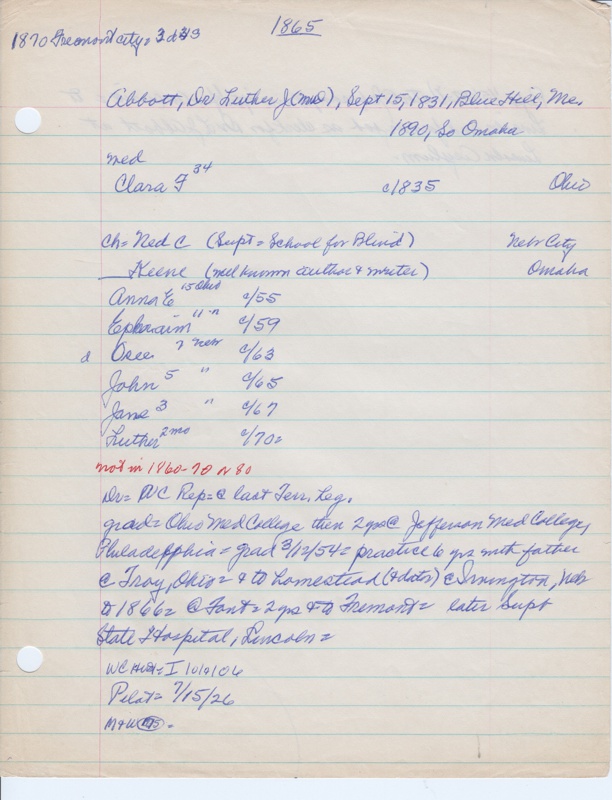 1865
1870 Fremont city = 3d
Abbott, Dr Luther J (MD), Sept 15, 1831, Blue Hill, Me.
1890, So Omaha
med
Clara F 34 c/1835 Ohio
ch = Ned C (Supt = School for Blind) Nebr City
Keene (well known author & writer) Omaha
Anna E 15 Ohio c/55
Ephraim 11 " c/59
d Osee 7 Nebr c/63
John 5 " c/65
Jane 3 " c/67
Luther 2 mo c/70=
not in 1860-70 or 80
Dr = WC Rep = @ last Terr. Leg.
grad = Ohio Med College then 2 yrs @ Jefferson Med College,
Philadelphia = grad 3/12/54 = practice 6 yrs with father
@ Troy, Ohio = & to homestead (& dates) @ Irvington, Nebr
to 1866 = @ Font = 2 yrs & to Fremont = later Supt
State Hospital, Lincoln =
WC Hist = I
Pilot = 7/15/26
M & W